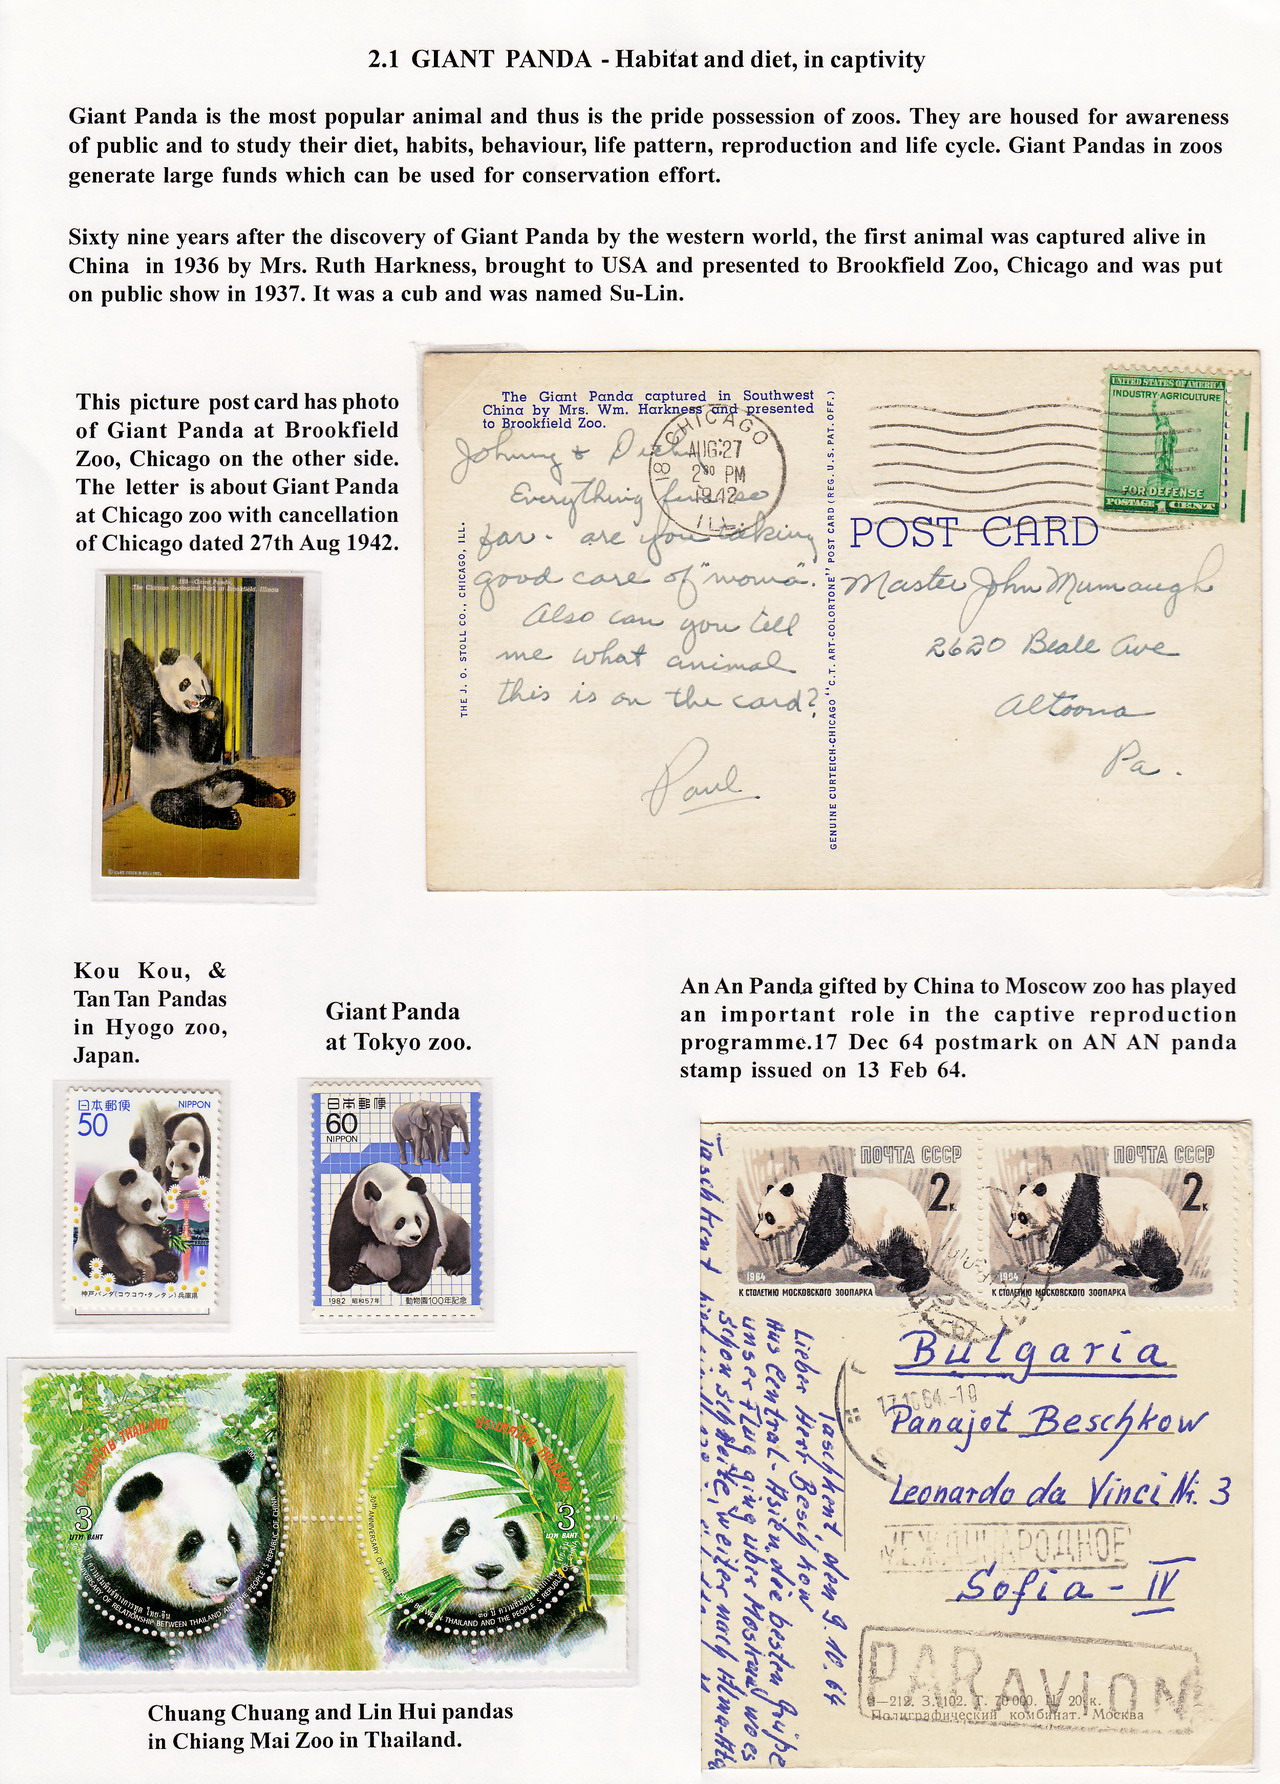 2.1 GIANT PANDA - Habitat and diet, in captivity
Giant Panda is the most popular animal and thus is the pride possession of zoos. They are housed for awareness
of public and to study their diet, habits, behaviour, life pattern, reproduction and life cycle. Giant Pandas in zoos
generate large funds which can be used for conservation effort.
Sixty nine years after the discovery of Giant Panda by the western world, the first animal was captured alive in
China in 1936 by Mrs. Ruth Harkness, brought to USA and presented to Brookfield Zoo, Chicago and was put
on public show in 1937. It was a cub and was named Su-Lin.
This picture post card has photo
of Giant Panda at Brookfield
Zoo, Chicago on the other side.
The letter is about Giant Panda
at Chicago zoo with cancellation
of Chicago dated 27th Aug 1942.
The Giant Panda captured in Southwest
China by Mrs. Wm. Harkness and presented
to Brookfield Zoo.
CHICAGO
18
AUG 27
2 30 PM
1942
ILL.
UNITED STATES OF AMERICA
INDUSTRY·AGRICULTURE
FOR DEFENSE
POSTAGE 1 CENT
POST CARD
Johnny &
Everything fine so
far. are you taking
good care of "moma".
Also can you tell
me what animal
this is on the card?
Paul
Master John Mumaugh
2620 Beale Ave
Altoona
Pa.
THE J. O. STOLL CO., CHICAGO, ILL.
GENUINE CURTEICH-CHICAGO "C.T. ART-COLORTONE" POST CARD (REG. U.S. PAT. OFF.)
Giant Panda,
The Chicago Zoological Park at Brookfield, Illinois
Kou Kou, &
Tan Tan Pandas
in Hyogo zoo,
Japan.
Giant Panda
at Tokyo zoo.
An An Panda gifted by China to Moscow zoo has played
an important role in the captive reproduction
programme.17 Dec 64 postmark on AN AN panda
stamp issued on 13 Feb 64.
日本郵便 NIPPON
50
神戸パンダ(コウコウ・タンタン) 兵庫県
日本郵便
60
NIPPON
1982 昭和57年 動物園100年記念
ПОЧТА СССР
2к.
1964
К СТОЛЕТИЮ МОСКОВСКОГО ЗООПАРКА
ПОЧТА СССР
2к.
1964
К СТОЛЕТИЮ МОСКОВСКОГО ЗООПАРКА
Bulgaria
Panajot Beschkow
Leonardo da Vinci Nr. 3
МЕЖДУНАРОДНОЕ
Sofia - IV
PAR AVION
З. 102. Т. 70 000. Ц. 20 к.
Полиграфический комбинат. Москва
Taschkent, den 9.10.64
Lieber Herr Beschkow
Aus Central-Asien die besten Grüße
unser Flug ging über Moskau, wo es
schon schneite, weiter nach Alma-Ata
ประเทศไทย THAILAND
3
บาท BAHT
ANNIVERSARY OF RELATIONSHIP BETWEEN THAILAND AND THE PEOPLE'S REPUBLIC OF CHINA
ประเทศไทย THAILAND
3
บาท BAHT
30TH ANNIVERSARY OF BETWEEN THAILAND AND THE PEOPLE'S REPUBLIC
Chuang Chuang and Lin Hui pandas
in Chiang Mai Zoo in Thailand.